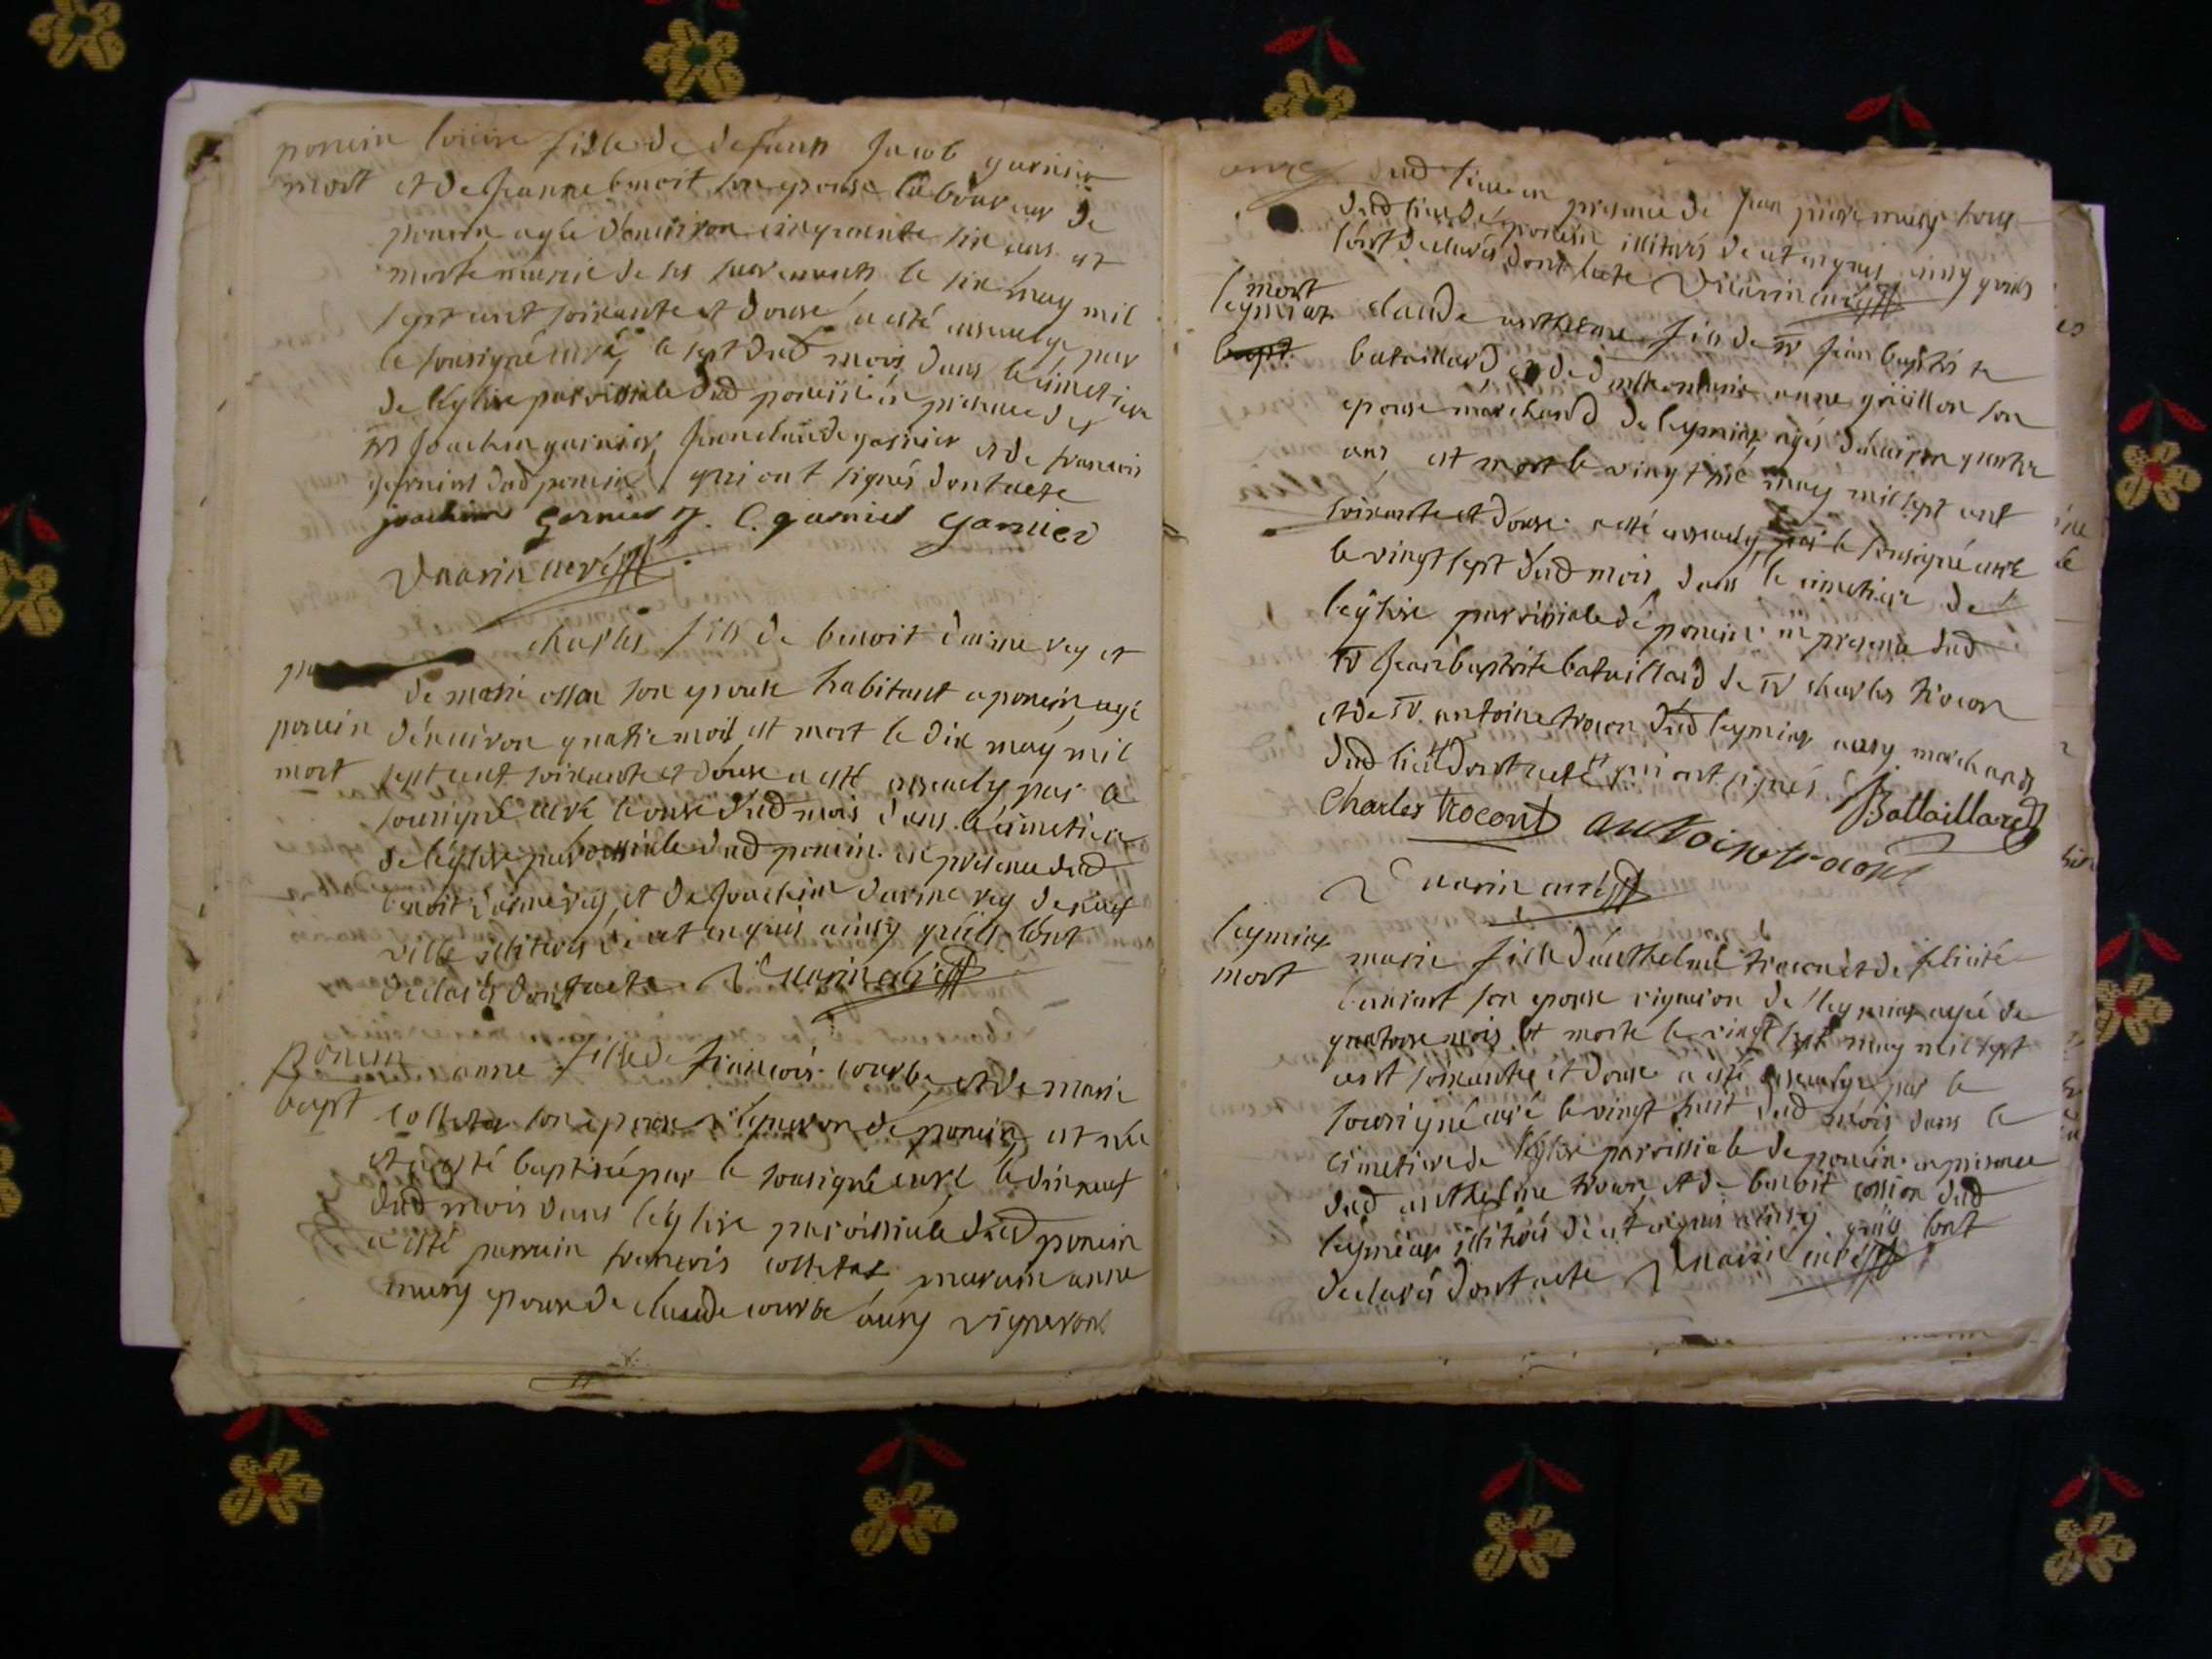 poncin louise fille de defunt Jacob garnier
mort et de Jeanne benoit son epouse laboureur de
poncin, agée d'environ cinquante six ans est
morte munie de ses sacremants le six may mil
sept cent soixante et douse, a esté ensevelye par
le sousigné curé, le sept dud mois dans le cimetiere
de l'eglise parroissiale dud poncin en presence de
Joachim garnier, Jean claude garnier et de francois
garnier dud poncin, qui ont signés dont acte
joachim Garnier J. C. garnier garnier
curé
charles fils de benoit et
de marie son epouse habitant a poncin, agé
poncin d'environ quatre mois est mort le dix may mil
mort sept cent soixante et douse a esté ensevely par le
sousigné curé le onse dud mois dans le cimetiere
de l'eglise parroissiale dud poncin en presence dud
benoit et de Joachim de neuf
ville illiterés de ce enquis ainsy qu'ils l'ont
declarés dont acte curé
poncin anne fille de francois courbe, et de marie
bapt son epouse vigneron de poncin, est née
et a esté baptisée par le sousigné curé le dix neuf
dud mois dans l'eglise parroissiale dud poncin
a esté parrain francois marraine anne
epouse de claude courbe aussy vigneron
dud lieu en presence de Jean tous
dud lieu de poncin illiterés de ce enquis ainsy qu'ils
l'ont declarés dont acte curé
mort
leymiat claude anthelme fils de Sr Jean baptiste
bapt bataillard, et de anne son
epouse marchand de leymiat, agés d'environ quatre
ans, est mort le vingt six may mil sept cent
soixante et douse a esté ensevely, par le sousigné curé
le vingt sept dud mois, dans le cimetiere de
l'eglise parroissiale de poncin en presence dud
Sr Jean baptiste bataillard de Sr charles trocon
et de Sr antoine trocon dud leymiat aussy marchands
dud lieu dont acte qui ont signés Battaillard
Charles trocont antoine trocont
curé
leymiat marie fille d'anthelme trocon et de felicité
mort son epouse vigneron de leymiat agée de
quatorse mois est morte le vingt sept may mil sept
cent soixante et douse a esté ensevelye par le
sousigné curé le vingt huit dud mois dans le
cimetiere de l'eglise parroissiale de poncin en presence
dud anthelme trocon, et de benoit dud
leymiat illiterés de ce enquis ainsy qu'ils l'ont
declarés dont acte curé